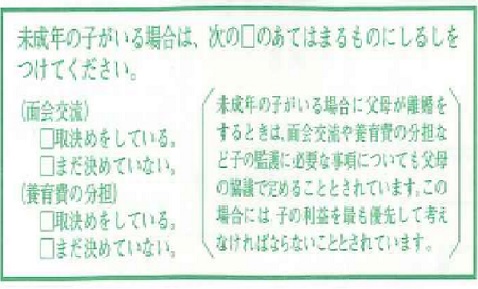 未成年の子がいる場合は、次の□のあてはまるものにしるしを
つけてください。
(面会交流)
□取決めをしている。
□まだ決めていない。
(養育費の分担)
□取決めをしている。
□まだ決めていない。
未成年の子がいる場合に父母が離婚を
するときは、面会交流や養育費の分担な
ど子の監護に必要な事項についても父母
の協議で定めることとされています。この
場合には 子の利益を最も優先して考え
なければならないこととされています。